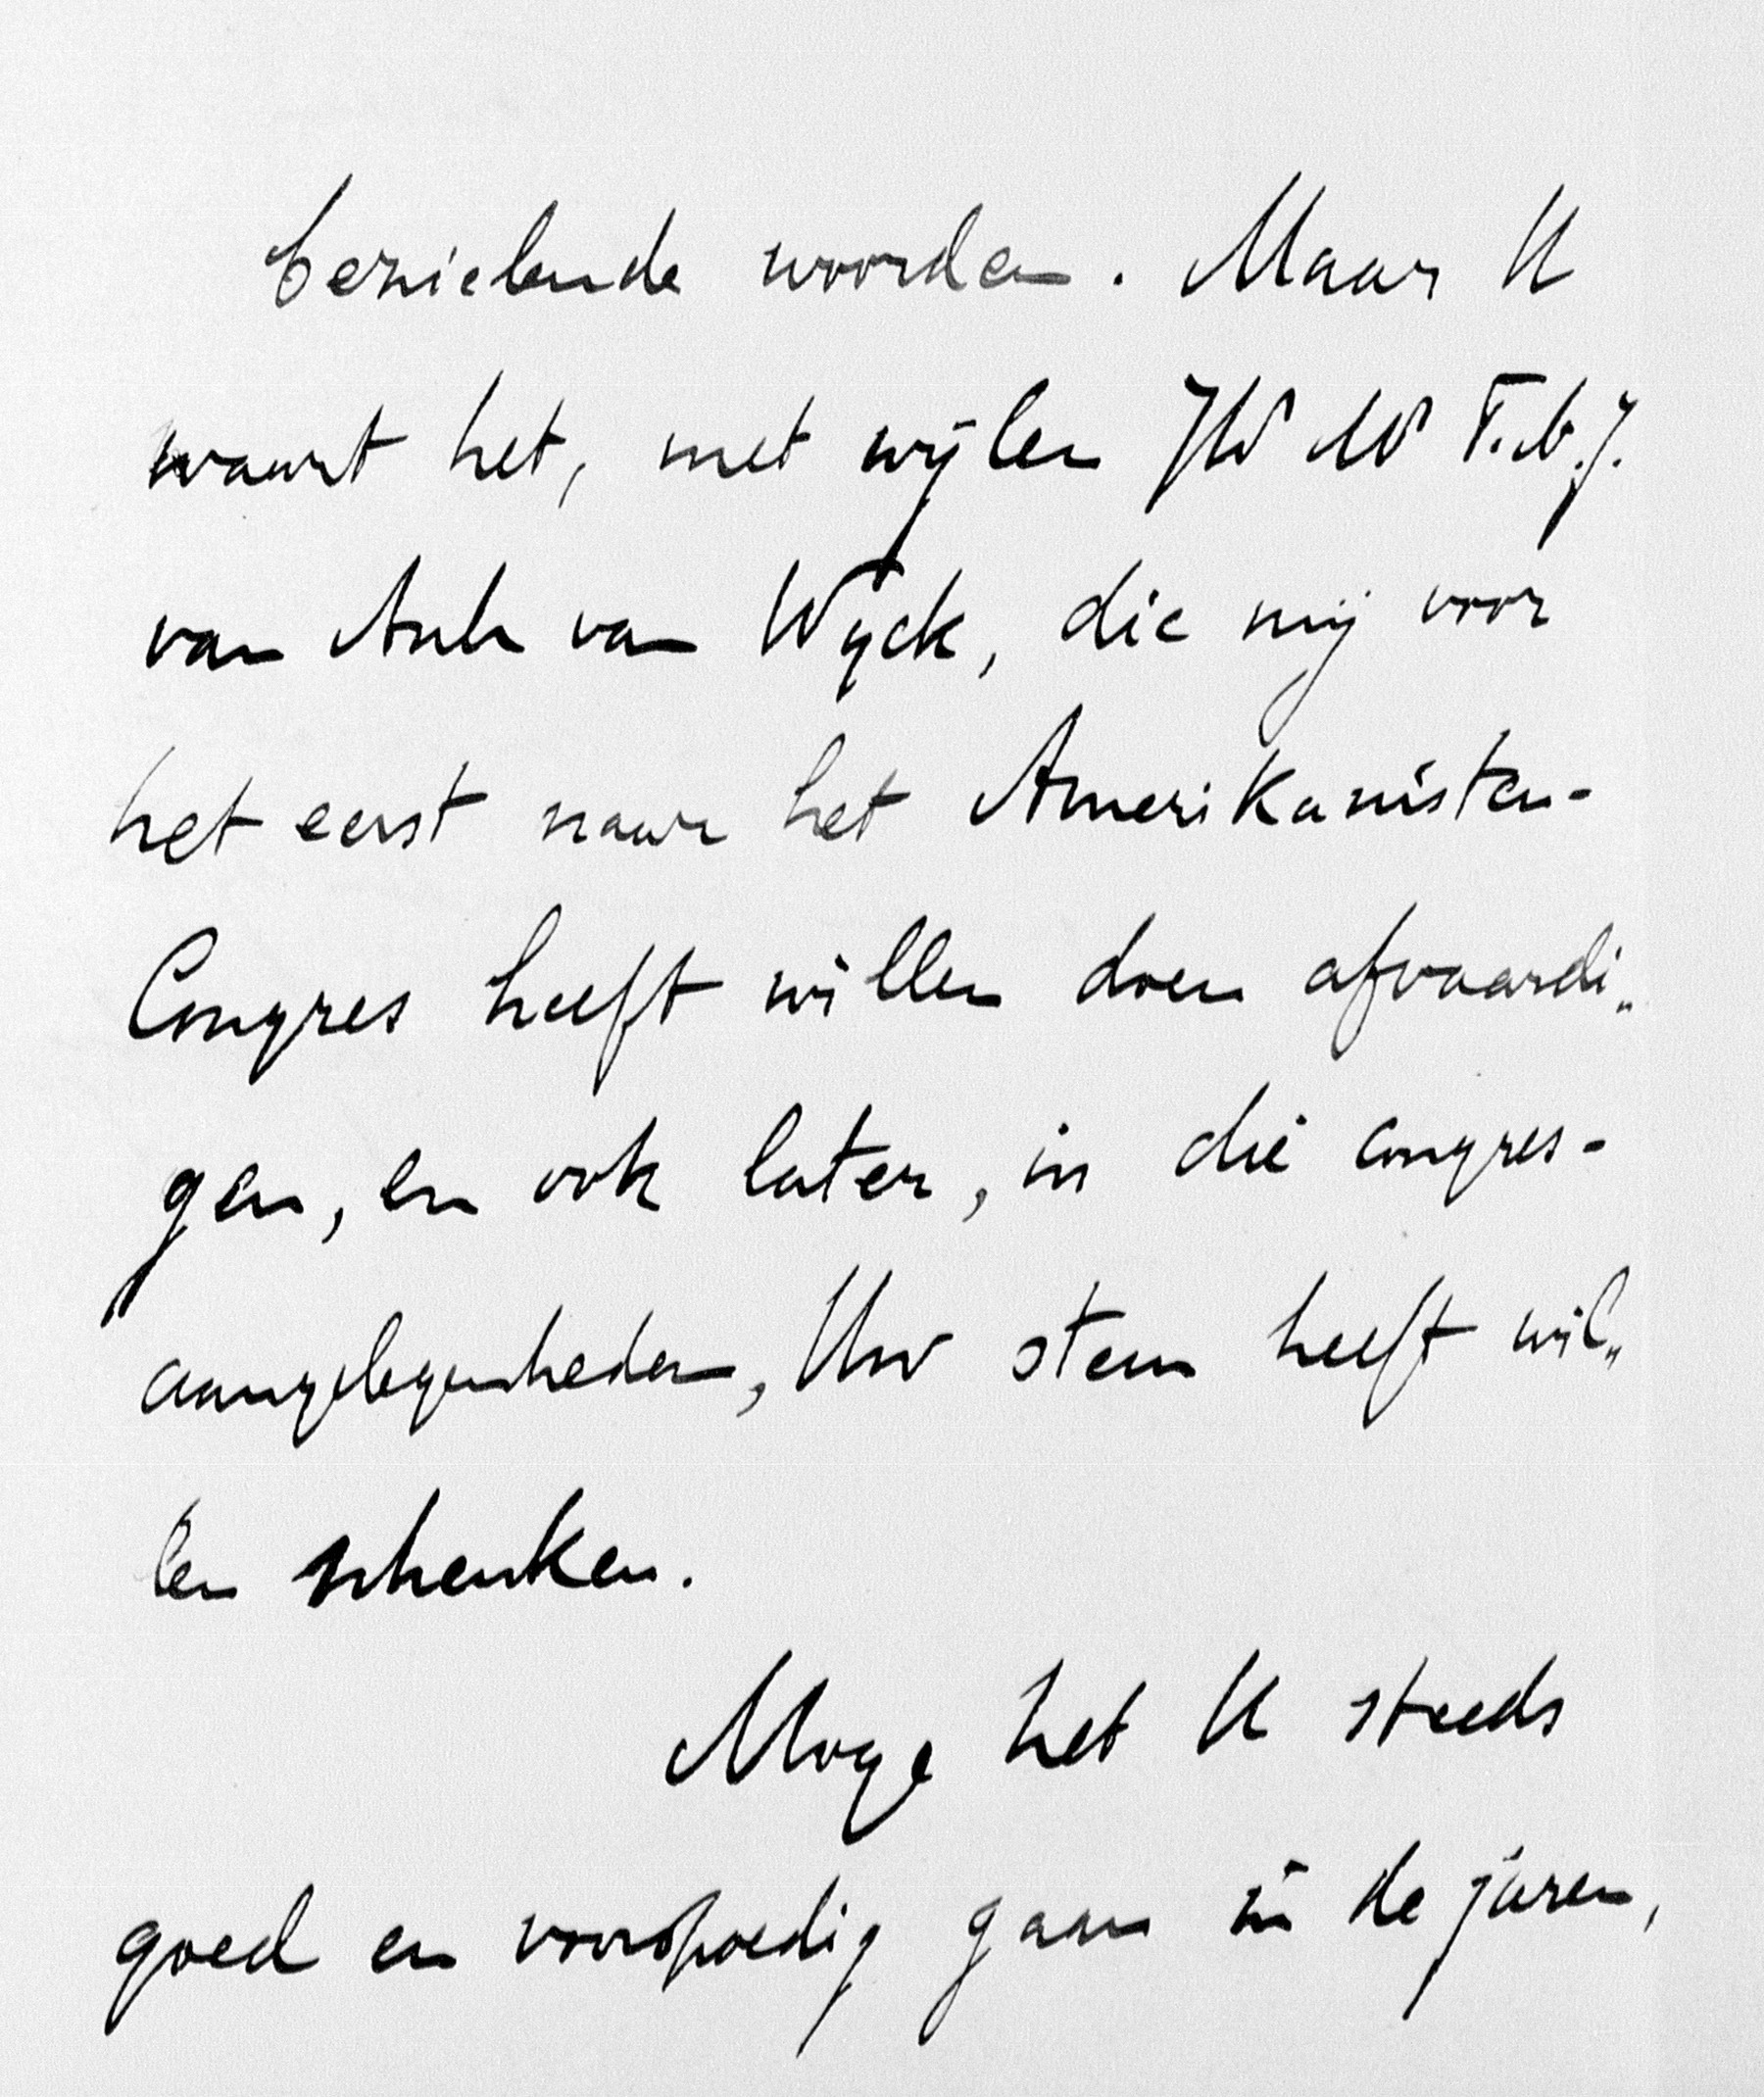 bezielende woorden. Maar U
waart het, met wijlen
van Aalst van Wijck, die mij voor
het eerst naar het Amerikanisten-
Congres heeft willen doen afvaardi„
gen, en ook later, in die congres-
aangelegenheden, Uw stem heeft wil„
len schenken.
Moge het U steeds
goed en voorspoedig gaan in de jaren,